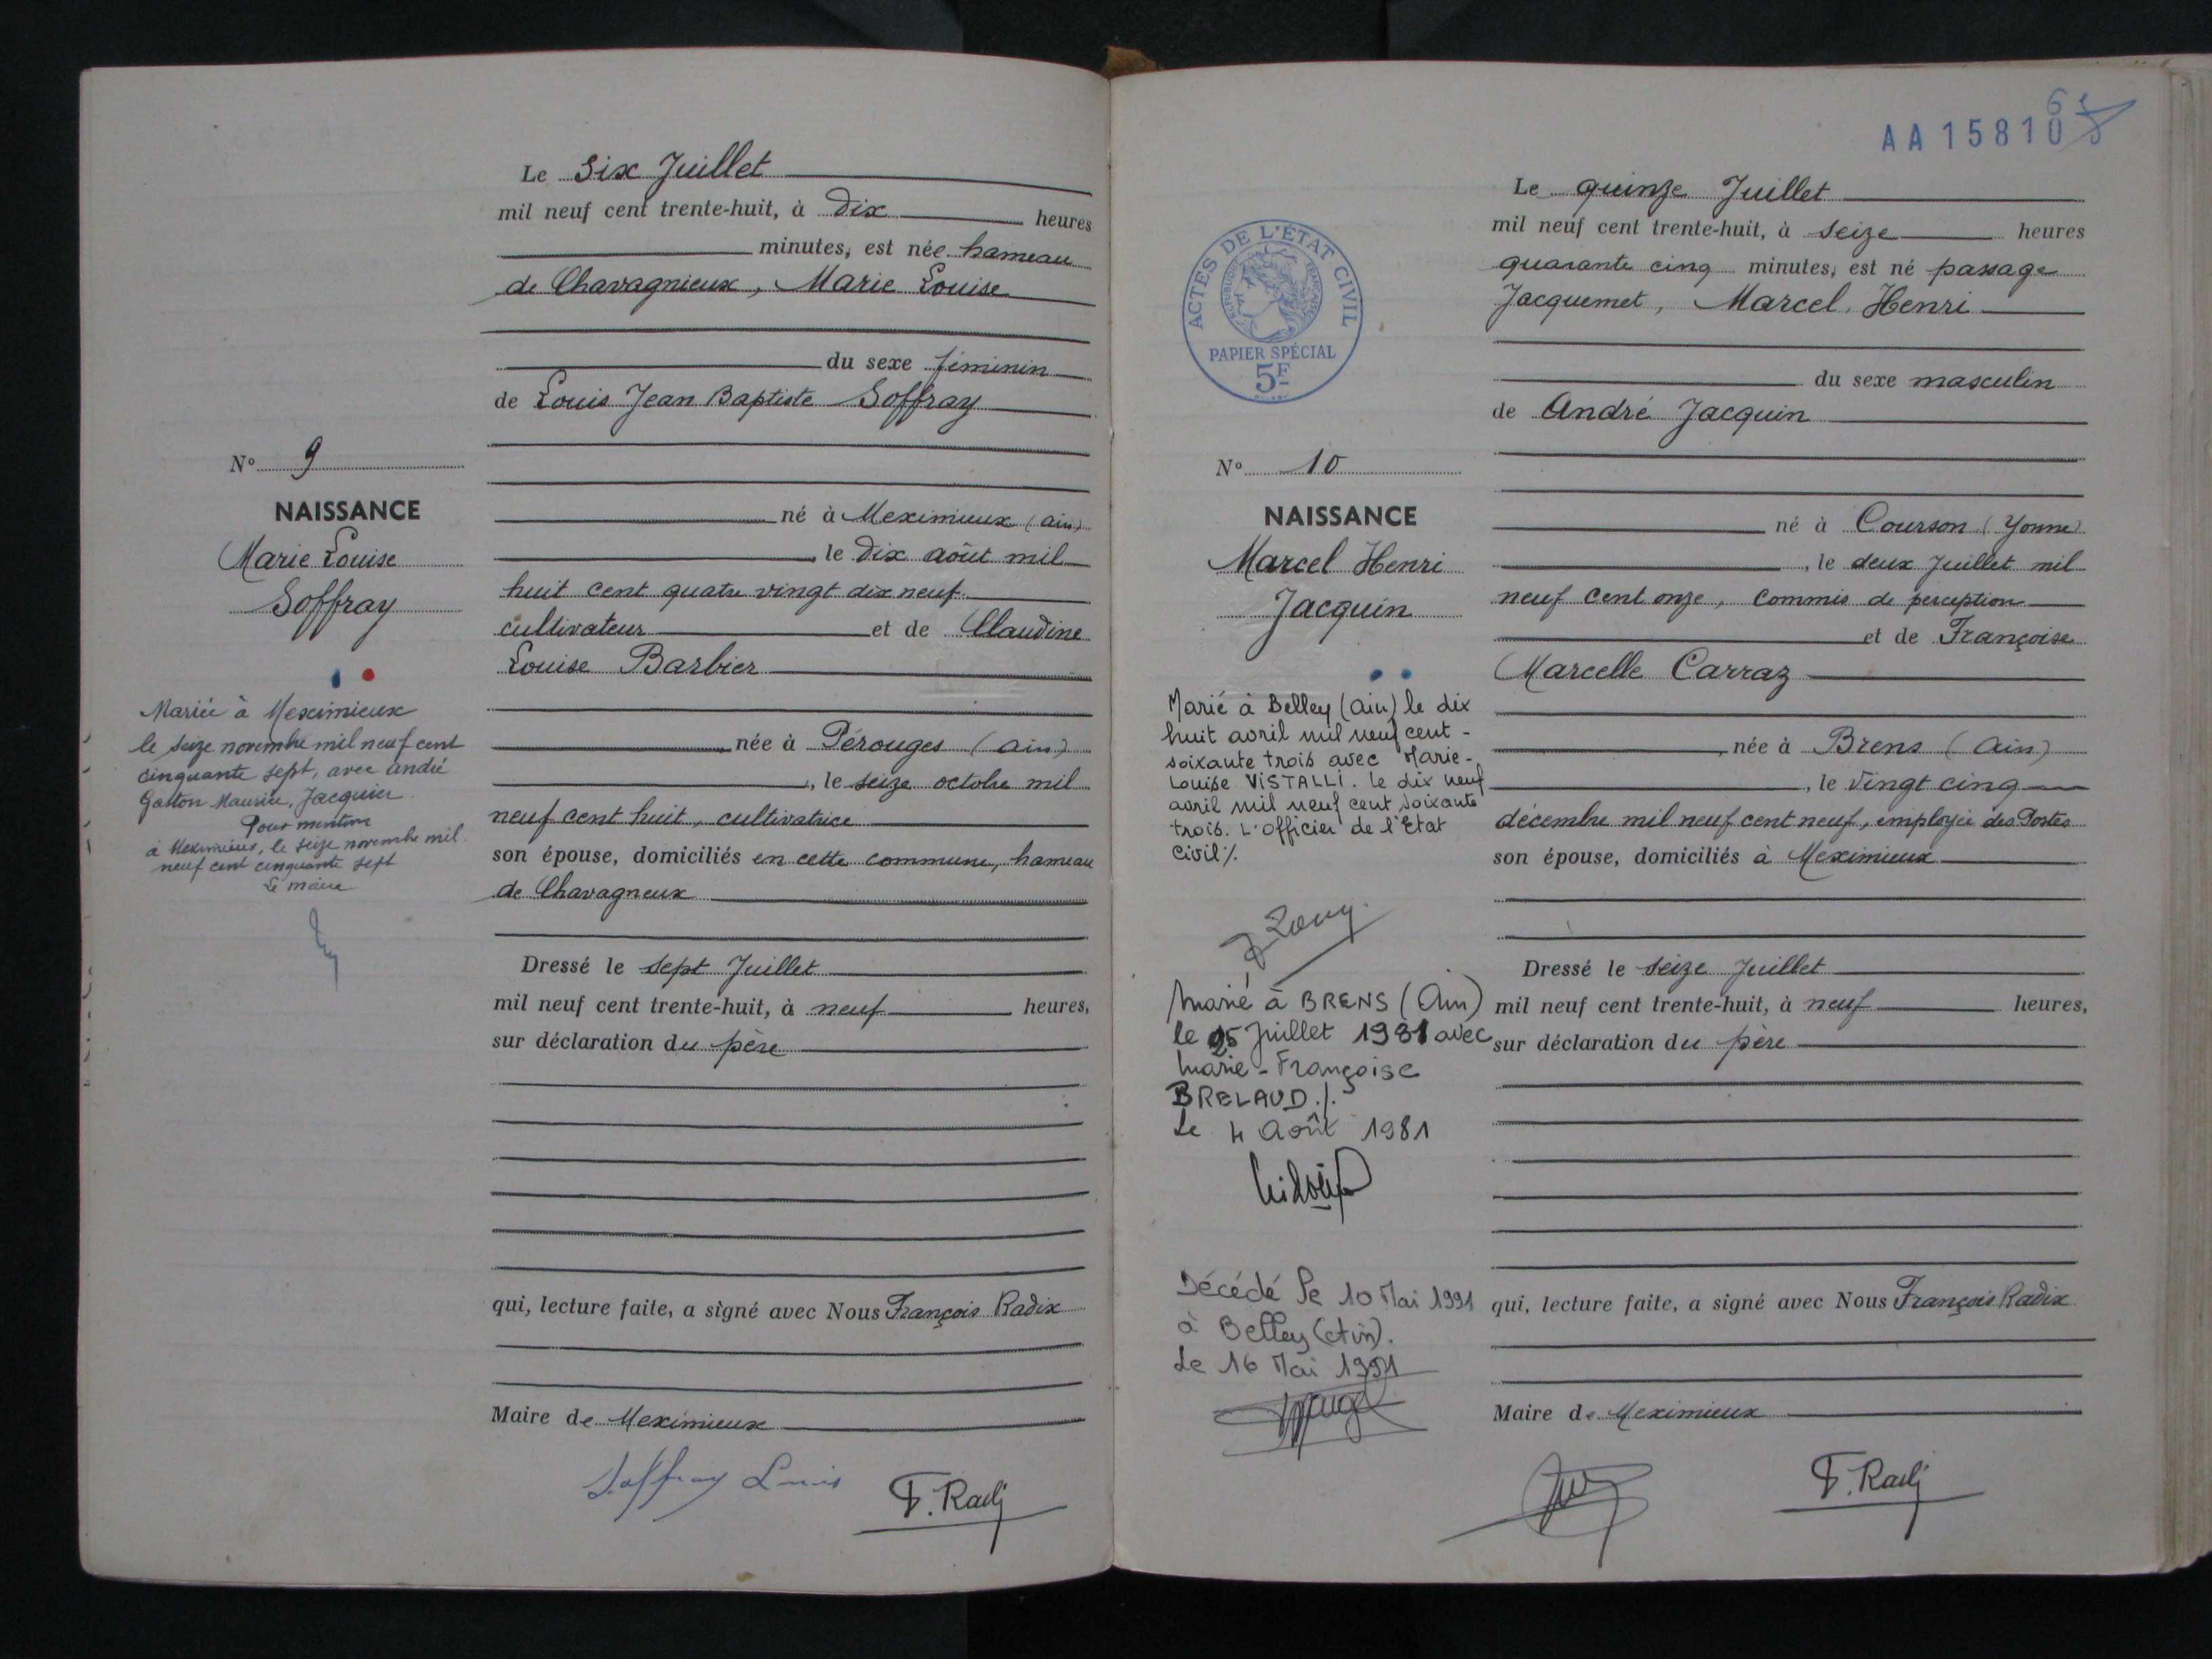 Le Six Juillet
mil neuf cent trente-huit, à Dix heures
minutes, est née hameau
de Chavagnieux, Marie Louise
du sexe féminin
de Louis Jean Baptiste Soffray
N° 9
NAISSANCE
Marie Louise
Soffray
né à Meximieux (ain)
le Dix août mil
huit cent quatre vingt dix neuf
cultivateur et de Claudine
Louise Barbier
née à Pérouges (ain)
, le seize octobre mil
neuf cent huit, cultivatrice
son épouse, domiciliés en cette commune, hameau
de Chavagneux
Mariée à Meximieux
le seize novembre mil neuf cent
cinquante sept, avec André
Gaston Maurice, Jacquier
Pour mention
à Meximieux, le seize novembre mil
neuf cent cinquante sept
Le maire
Dressé le sept Juillet
mil neuf cent trente-huit, à neuf heures,
sur déclaration du père
qui, lecture faite, a signé avec Nous François Radix
Maire de Meximieux
Soffray Louis
F. Radix
AA 15810
Le quinze Juillet
mil neuf cent trente-huit, à seize heures
quarante cinq minutes, est né passage
Jacquemet, Marcel, Henri
du sexe masculin
de André Jacquin
ACTES DE L'ÉTAT CIVIL
RÉPUBLIQUE FRANÇAISE
PAPIER SPÉCIAL
5F
N° 10
NAISSANCE
Marcel Henri
Jacquin
né à Courson (Yonne)
, le deux Juillet mil
neuf cent onze, commis de perception
et de Françoise
Marcelle Carraz
née à Brens (Ain)
, le vingt cinq
décembre mil neuf cent neuf, employée des Postes
son épouse, domiciliés à Meximieux
Marié à Belley (ain) le dix
huit avril mil neuf cent -
soixante trois avec Marie-
Louise VISTALLI. Le dix neuf
avril mil neuf cent soixante
trois. L'officier de l'Etat
Civil /.
Marié à BRENS (Ain)
le 25 Juillet 1981 avec
Marie-Françoise
BRELAUD./.
Le 4 Août 1981
Décédé le 10 Mai 1991
à Belley (Ain).
Le 16 Mai 1991
Dressé le seize Juillet
mil neuf cent trente-huit, à neuf heures,
sur déclaration du père
qui, lecture faite, a signé avec Nous François Radix
Maire de Meximieux
F. Radix